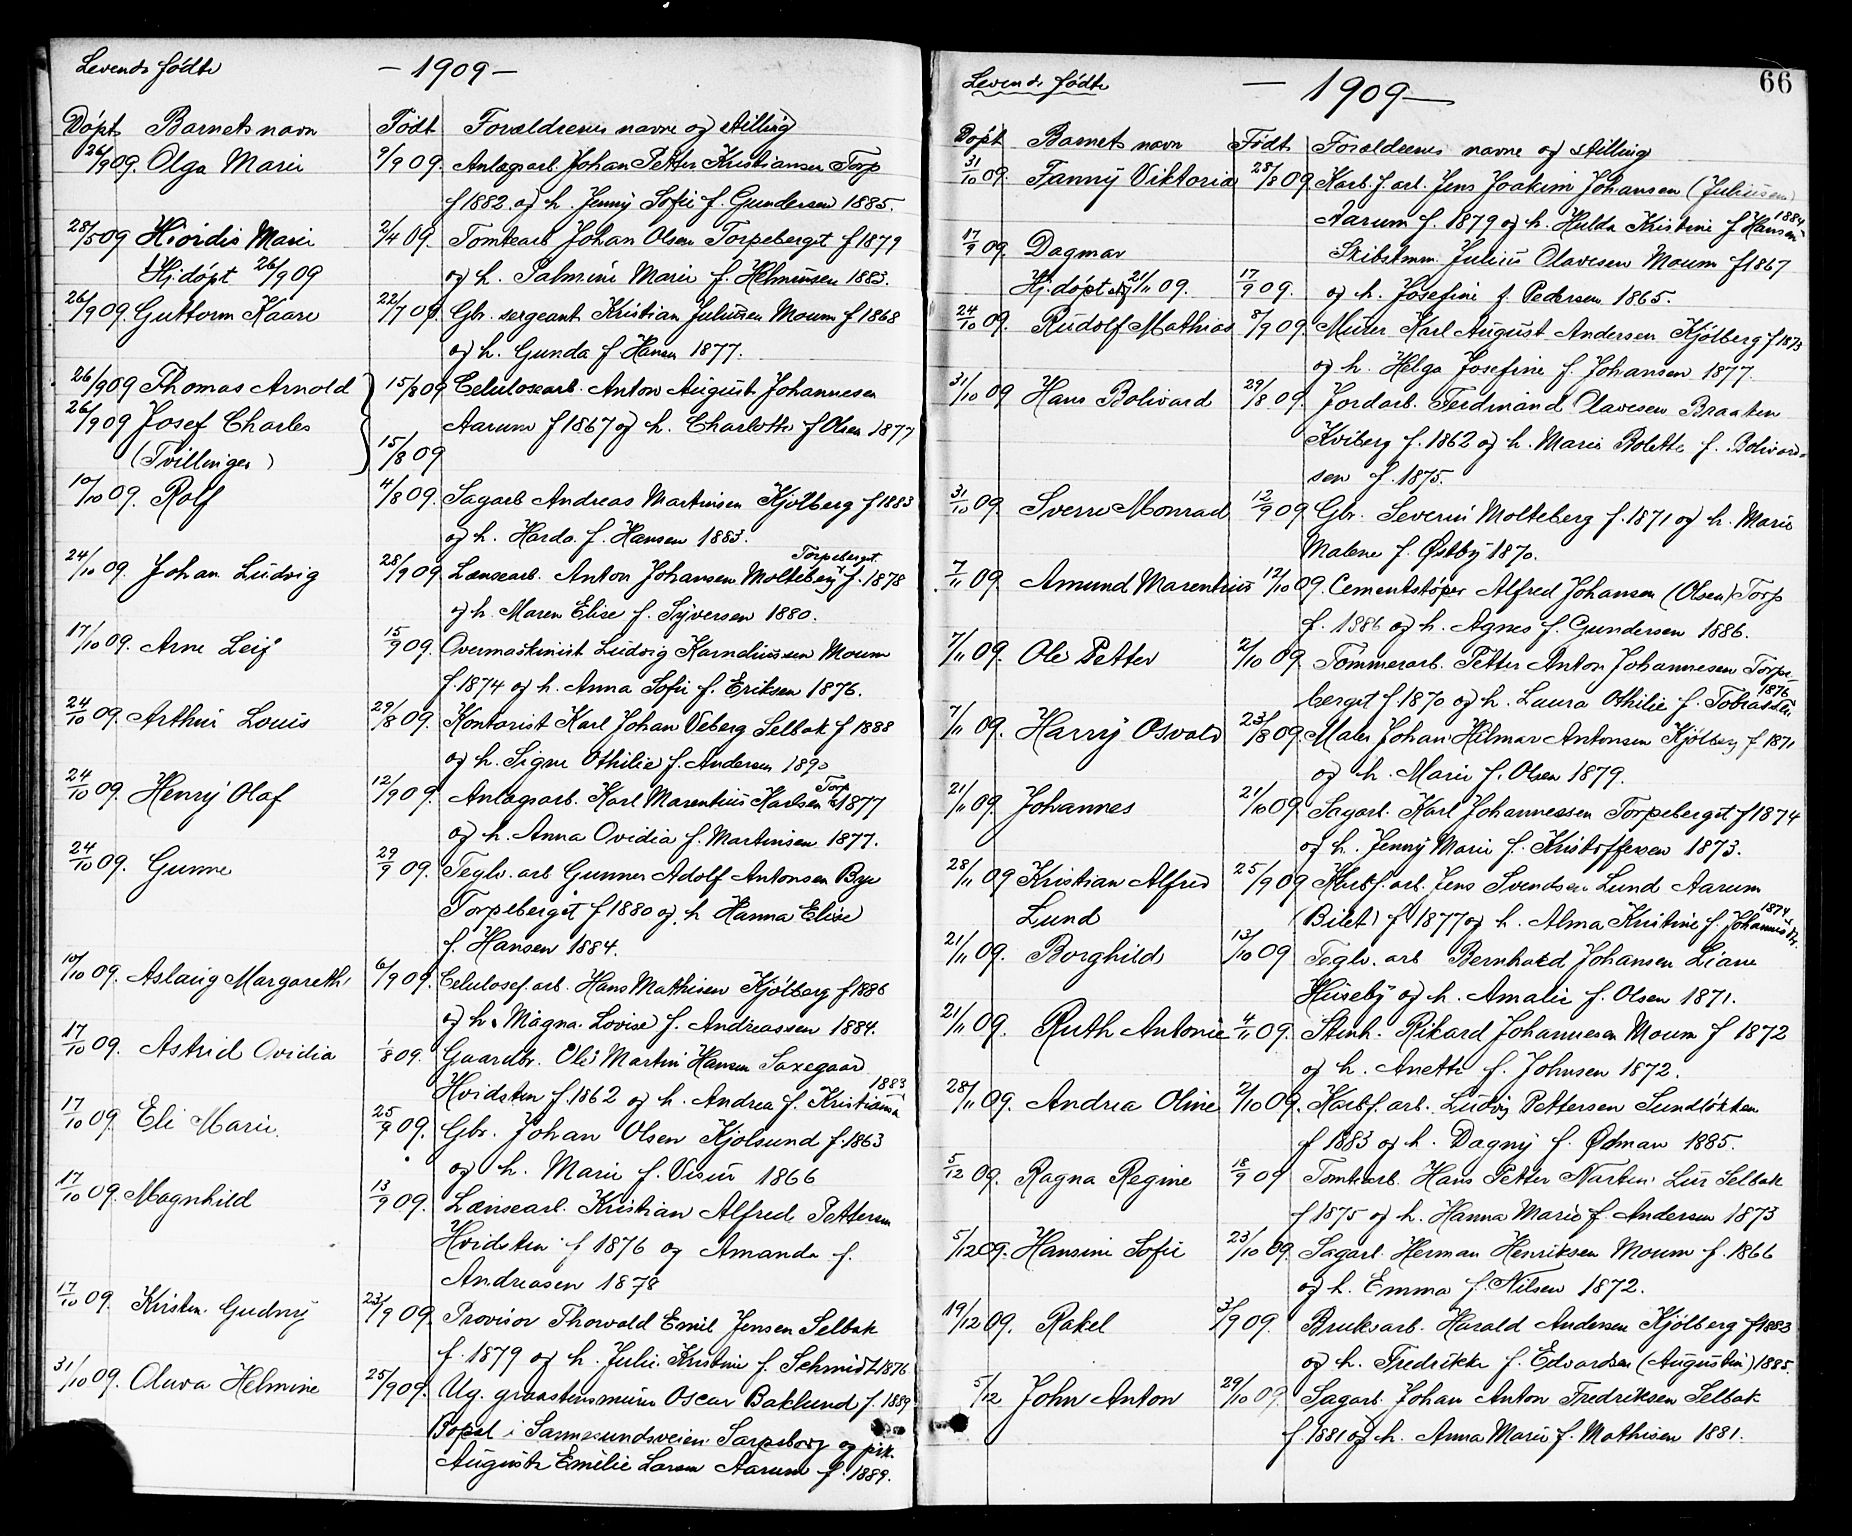 Levende fødte — 1909 —
Døpt Barnets navn Født Forældrenes navne og stilling
26/9 09. Olga Marie 9/9 09. Anlægsarb. Johan Petter Kristiansen Torp
f 1882. og h. Jenny Sofie f. Gundersen 1885.
28/5 09 Hiördis Marie 2/4 09. Tomtearb Johan Olsen Torpeberget f 1879
Hj.døpt 26/9 09 og h. Palmine Marie f. Helmersen 1883.
26/9 09. Guttorm Kaare 22/7 09. Gbr. sergeant Kristian Juliussen Moum f 1868
og h. Gunda f Hansen 1877.
26/9 09 Thomas Arnold 15/8 09 Celulosearb. Anton August Johannesen
26/9 09 Josef Charles Aarum f 1867 og h. Charlotte f Olsen 1877
(Tvillinger) 15/8 09
10/10 09. Rolf 4/8 09. Sagarb Andreas Martinsen Kjølberg f 1883
og h. Harda f. Hansen 1883.
24/10 09. Johan Ludvig 28/9 09. Lænsearb. Anton Johansen Molteberg Torpeberget f. 1878
og h. Maren Elise f. Syversen 1880.
17/10 09. Arne Leif 15/9 09. Overmaskinist Ludvig Karneliussen Moum
f. 1874 og h. Anna Sofie f. Eriksen 1876.
24/10 09. Arthur Louis 29/8 09. Kontorist Karl Johan Veberg Selbak f 1888
og h. Signe Othilie f. Andersen 1890
24/10 09. Henry Olaf 12/9 09. Anlægsarb. Karl Marentius Karlsen Torp f. 1877
og h. Anna Ovidia f. Martinsen 1877.
24/10 09. Gunne 29/9 09. Teglv. arb Gunner Adolf Antonsen Bye
Torpeberget f 1880 og h Hanna Elise
f. Hansen 1884.
10/10 09. Aslaug Margareth 6/9 09. Celulosef.arb. Hans Mathisen Kjølberg f 1886
og h. Magna Lovise f. Andreassen 1884.
17/10 09. Astrid Ovidia 1/8 09. Gaardbr. Ole Martin Hansen Saxegaard
Hvidsten f. 1862 og h. Andrea f. Kristiansen 1883
17/10 09. Eli Marie. 25/9 09. Gbr. Johan Olsen Kjølsund f. 1863
og h. Marie f. Visur 1866
17/10 09. Magnhild 13/9 09. Lænsearb. Kristian Alfred Pettersen
Hvidsten f 1876 og Amanda f.
Andreasen 1878
17/10 09. Kirsten Gudny 23/9 09. Provisor Thorvald Emil Jensen Selbak
f. 1879 og h. Julie Kristine f. Schmidt 1876
31/10 09. Oluva Helmine 25/9 09. Ug. graastensmurer Oscar Baklund f. 1889
Bopæl i Sannesundsveien Sarpsborg og pik.
Auguste Emilie Larsen Aarum f. 1889.
66
Levende fødte — 1909 —
Døpt Barnets navn Født Forældrenes navne og stilling
31/10 09. Fanny Viktoria 28/8 09 Karb.f. arb. Jens Joakim Johansen (Juliusen)
Aarum f. 1879 og h. Hulda Kristine f Hansen 1884
17/9 09. Dagmar Skibstmm. Julius Olavesen Moum f 1867
Hj. døpt 21/11 09. 17/9 09. og h. Josefine f. Pedersen 1865.
24/10 09. Rudolf Mathias 8/9 09. Murer Karl August Andersen Kjølberg f 1873
og h. Helga Josefine f. Johansen 1877.
31/10 09 Hans Bolivard 29/8 09. Jordarb. Ferdinand Olavesen Braaten
Kviberg f. 1862 og h. Marie Bolette f. Bolivard-
sen f. 1875.
31/10 09. Sverre Monrad 12/9 09 Gbr. Severin Molteberg f. 1871 og h. Marie
Malene f. Østby 1870.
7/11 09. Amund Marentius 12/10 09. Cementstøper Alfred Johansen (Olsen) Torp
f. 1886 og h. Agnes f. Gundersen 1886.
7/11 09. Ole Petter 2/10 09. Tømmerarb. Petter Anton Johannesen Torpe-
berget f 1870 og h. Laura Othilie f. Tobiassen 1876
7/11 09. Harry Osvald 23/8 09. Maler Johan Hilmar Antonsen Kjølberg f 1871
og h. Marie f. Olsen 1879.
21/11 09. Johannes 21/10 09. Sagarb. Karl Johannessen Torpeberget f 1874
og h. Jenny Marie f. Kristoffersen 1873.
28/11 09 Kristian Alfred 25/9 09 Karbf. arb. Jens Svendsen Lund Aarum
Lund (Bilet) f 1877 og h. Alma Kristine f. Johannesdtr. 1874
21/11 09. Borghild 13/10 09 Teglv. arb Bernhard Johansen Liane
Huseby og h. Amalie f. Olsen 1871.
21/11 09. Ruth Antonie 4/11 09. Stenh. Rikard Johannesen Moum f 1872
og h. Anette f. Johnsen 1872.
28/11 09. Andrea Oline 2/10 09. Karbf. arb. Ludvig Pettersen Sundløkken
f 1883 og h. Dagny f. Ødman 1885.
5/12 09. Ragna Regine 18/9 09 Tomtearb. Hans Petter Narten Lur Selbak
f 1875 og h. Hanna Marie f. Andersen 1873
5/12 09. Hansine Sofie 23/10 09. Sagarb. Herman Henriksen Moum f. 1866
og h. Emma f. Nilsen 1872.
19/12 09. Rakel 3/9 09. Bruksarb. Harald Andersen Kjølberg f 1883
og h. Fredrikke f. Edvardsen (Augustin) 1885.
5/12 John Anton 29/10 09. Sagarb. Johan Anton Fredriksen Selbak
f. 1881 og h. Anna Marie f. Mathisen 1881.